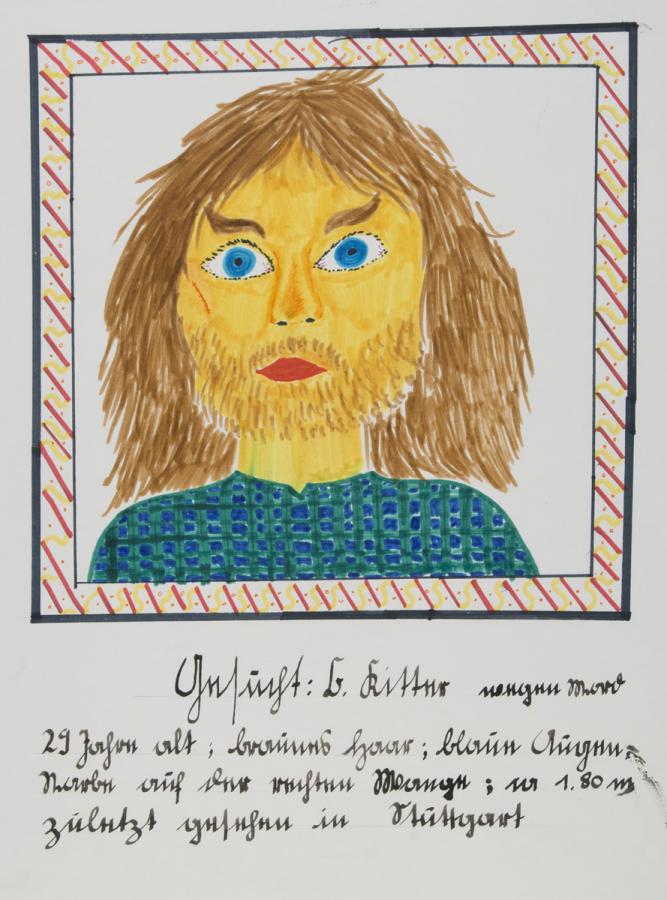 Gesucht: G. Ritter wegen Mord
29 Jahre alt; braunes Haar; blaue Augen;
Narbe auf der rechten Wange; ca 1.80 m
zuletzt gesehen in Stuttgart